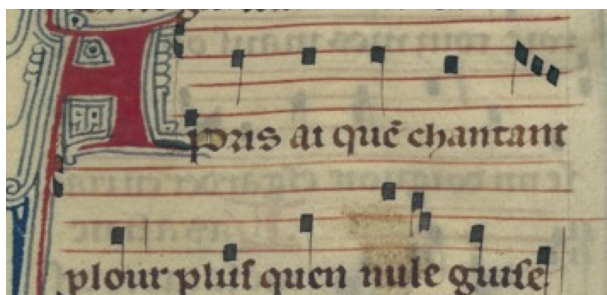 Apris ai quē chantant
plour pluſ quen nule guiſe